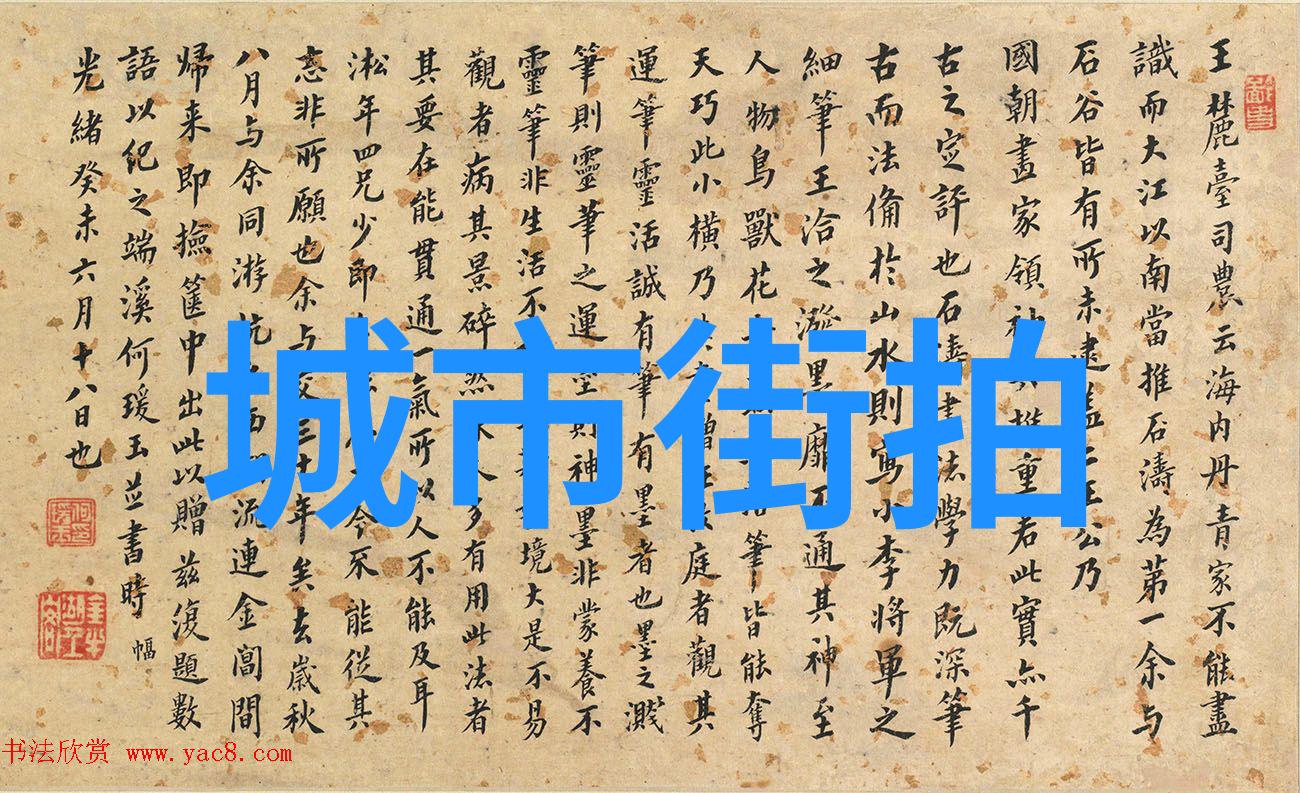 王麓臺司農云海内丹青家不能盡
識而大江以南當推石濤為第一余与
石谷皆有所未逮盖二王公乃
國朝畫家領神其推重若此實亦千
古之定評也石濤書法學力既深筆
古而法備於山水則寫小李將軍之
細筆王洽之潑墨靡不通其神至
人物鳥獸花筆皆能奪
天巧此小橫乃庭者觀其
運筆靈活誠有筆有墨者也墨之濺
筆則靈筆之運墨則神墨非蒙養不
靈筆非生活不境大是不易
觀者病其景碎人多有用此法者
其要在能貫通一氣所以人不能及耳
淞年四兄少即今不能從其
志非所願也余与交三十年矣去歲秋
八月与余同游杭西流連金閶間
歸来即撿篋中出此以贈兹復題數
語以紀之端溪何瑗玉並書時
幅
光緒癸未六月十八日也
城市街拍
书法欣赏 www.yac8.com